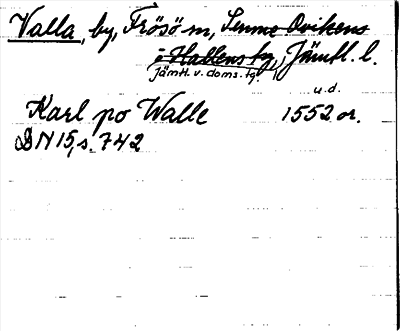 Valla, by, Frösö sn, Sunne Ovikens
o Hallens tg, Jämtl. l.
Jämtl. v. doms. tg.
u.d.
Karl po Walle 1552 or.
DN 15, s. 742